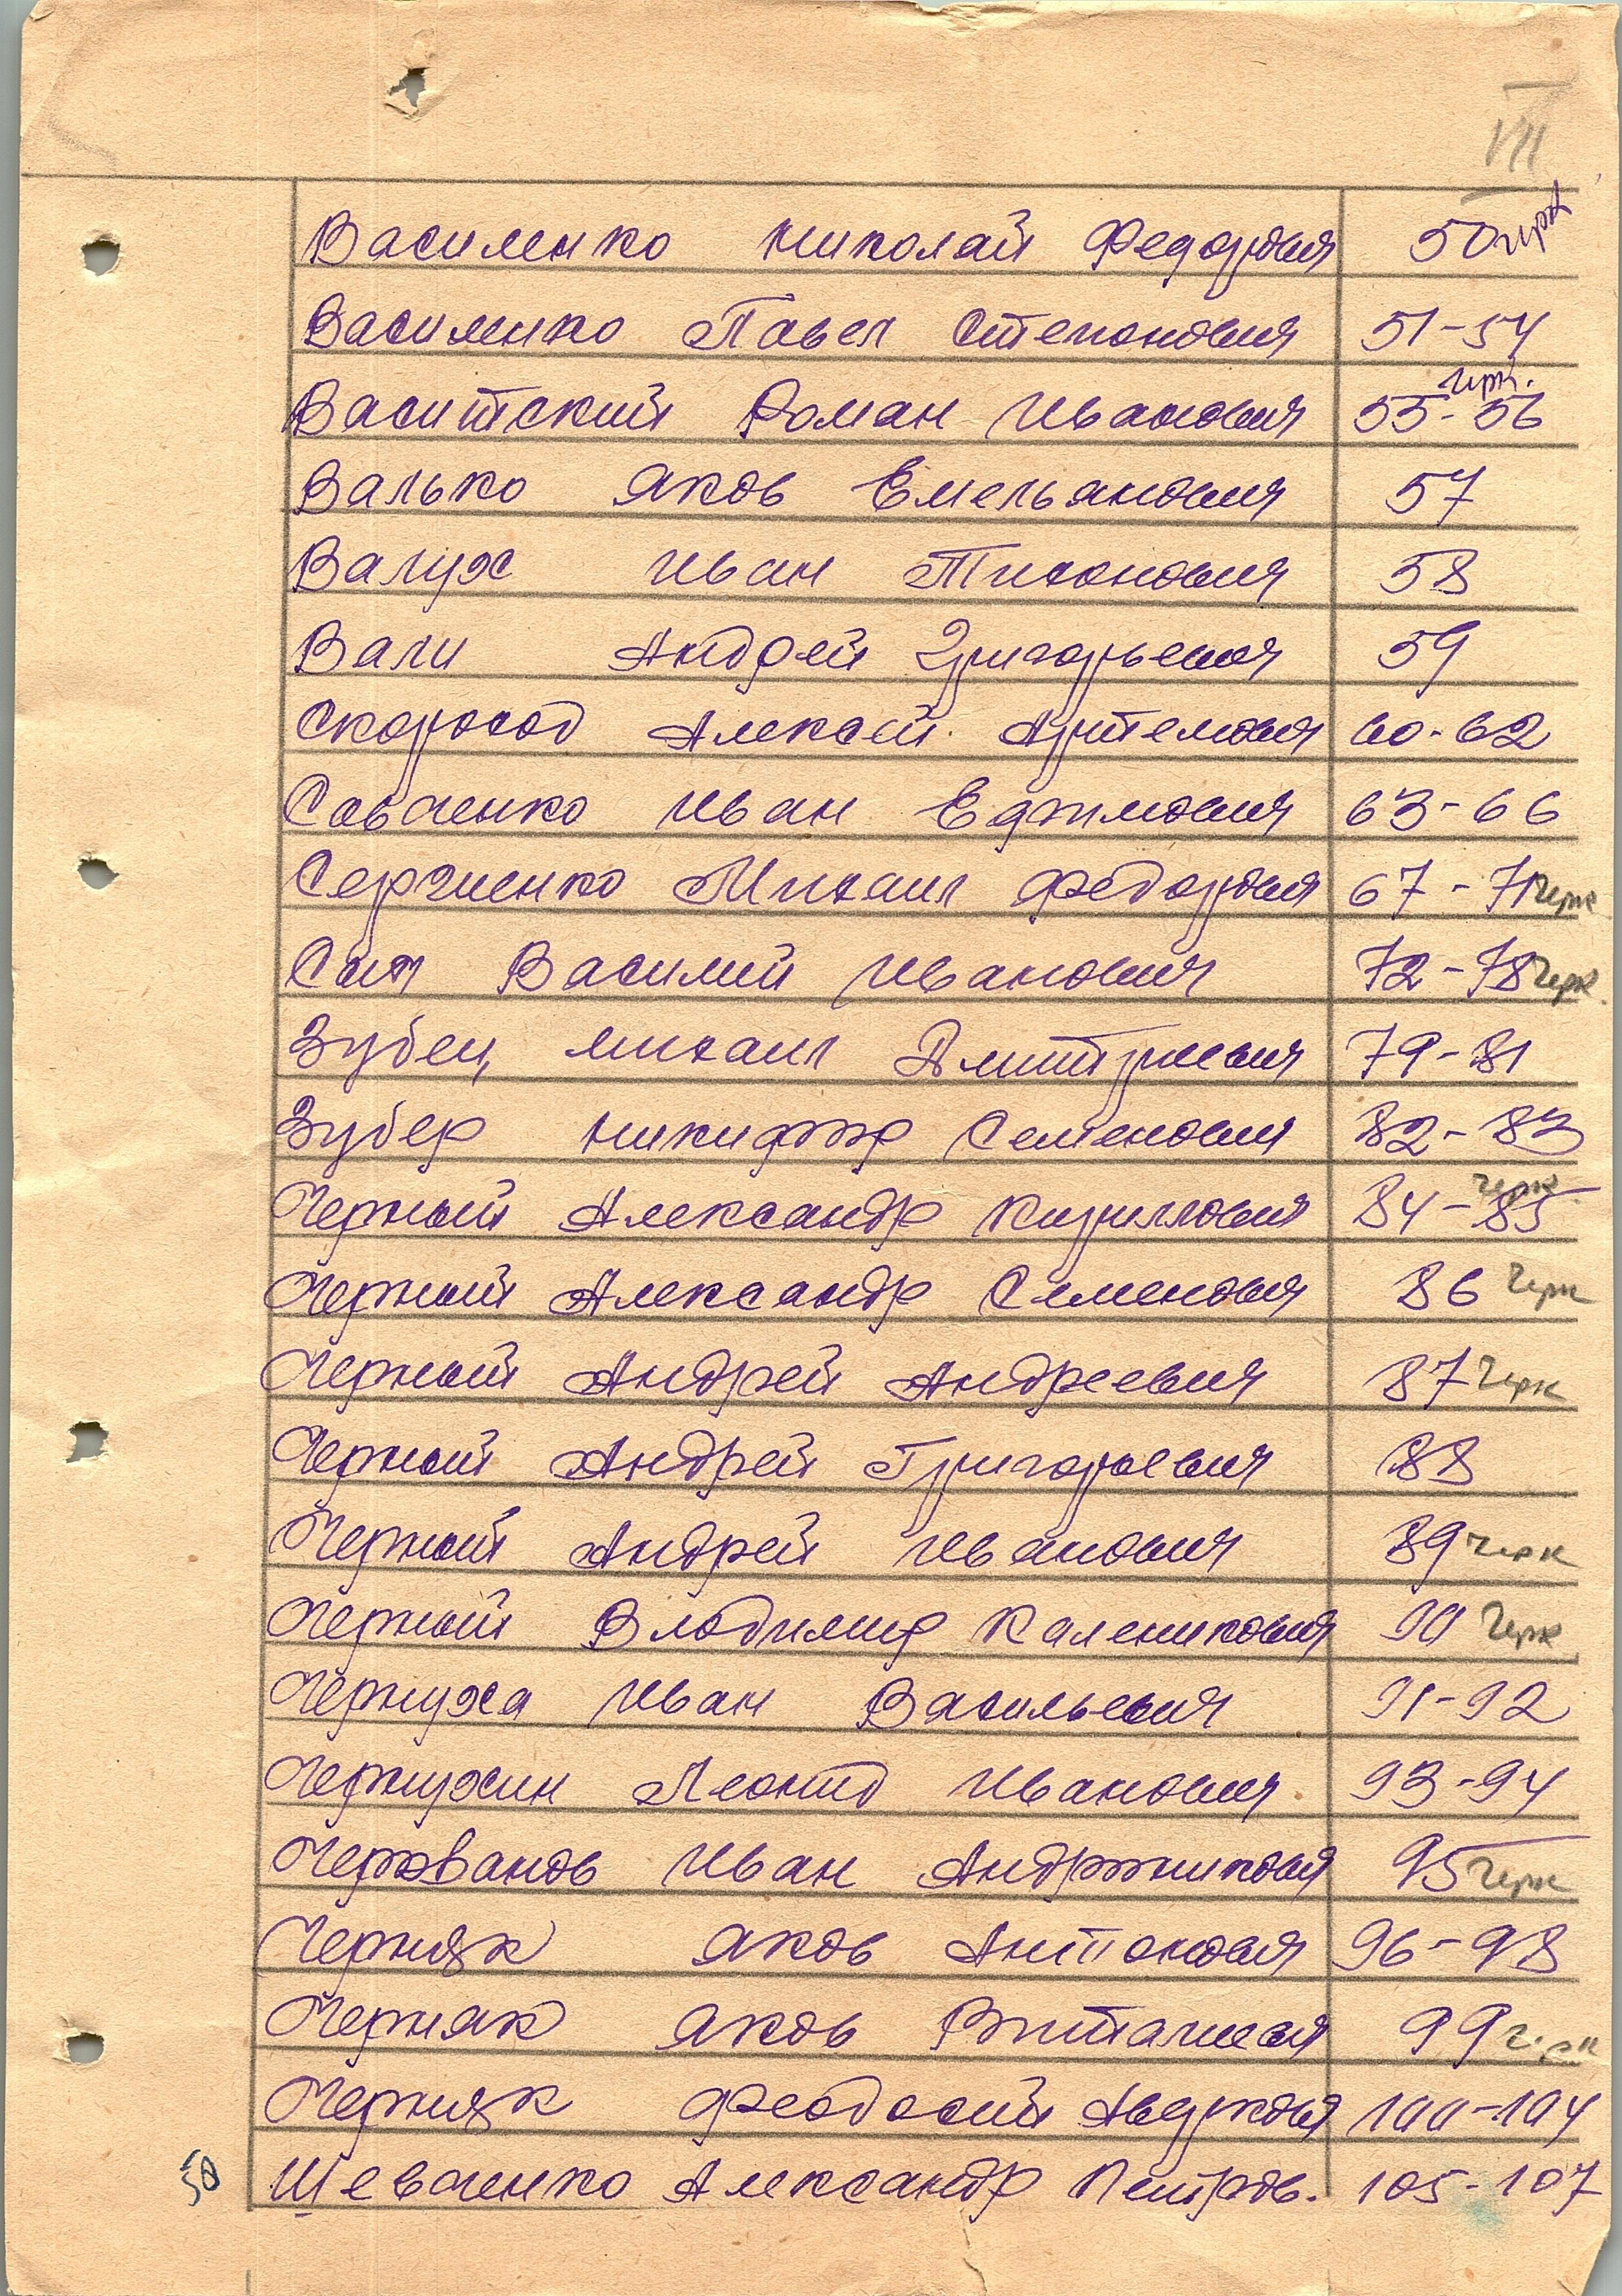 VII
Василенко Николай Федорович 50 черк
Василенко Павел Степанович 51-54
Васитский Роман Иванович 55-56 черк.
Валько Яков Емельянович 57
Валух Иван Тихонович 58
Вали Андрей Григорьевич 59
Скороход Алексей Артемович 60-62
Савченко Иван Ефимович 63-66
Сергиенко Михаил Федорович 67-71 черк
Сыч Василий Иванович 72-78 черк.
Зубец Михаил Дмитриевич 79-81
Зубер Никифор Семенович 82-83
Черный Александр Кириллович 84-85 черк
Черный Александр Семенович 86 черк
Черный Андрей Андреевич 87 черк
Черный Андрей Григорьевич 88
Черный Андрей Иванович 89 черк
Черный Владимир Каленикович 90 черк
Чернуха Иван Васильевич 91-92
Чернухин Леонид Иванович 93-94
Черованов Иван Андроникович 95 черк
Черняк Яков Антонович 96-98
Черняк Яков Витальевич 99 черк
Черняк Феодосий Авдукович 100-104
50 Шевченко Александр Петров. 105-107